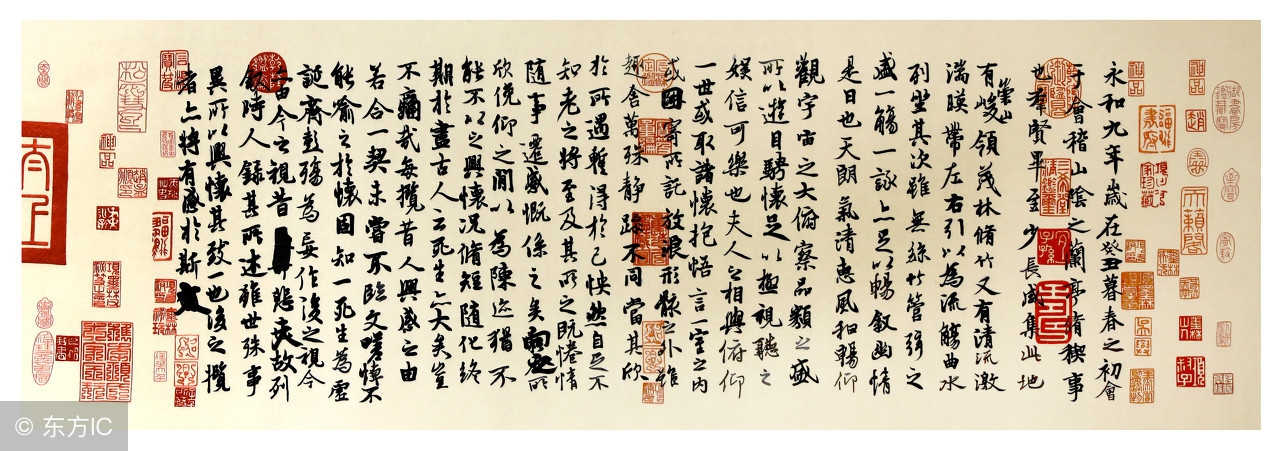 永和九年歲在癸丑暮春之初會
于會稽山陰之蘭亭脩稧事
也羣賢畢至少長咸集此地
有崇山峻領茂林脩竹又有清流激
湍暎帶左右引以為流觴曲水
列坐其次雖無絲竹管弦之
盛一觴一詠亦足以暢叙幽情
是日也天朗氣清惠風和暢仰
觀宇宙之大俯察品類之盛
所以遊目騁懷足以極視聽之
娛信可樂也夫人之相與俯仰
一世或取諸懷抱悟言一室之內
或因寄所託放浪形骸之外雖
趣舍萬殊靜躁不同當其欣
於所遇暫得於己怏然自足不
知老之將至及其所之既惓情
隨事遷感慨係之矣向之所
欣俛仰之閒以為陳迹猶不
能不以之興懷況脩短隨化終
期於盡古人云死生亦大矣豈
不痛哉每攬昔人興感之由
若合一契未嘗不臨文嗟悼不
能喻之於懷固知一死生為虛
誕齊彭殤為妄作後之視今
亦由今之視昔悲夫故列
叙時人錄其所述雖世殊事
異所以興懷其致一也後之攬
者亦將有感於斯文
© 东方IC